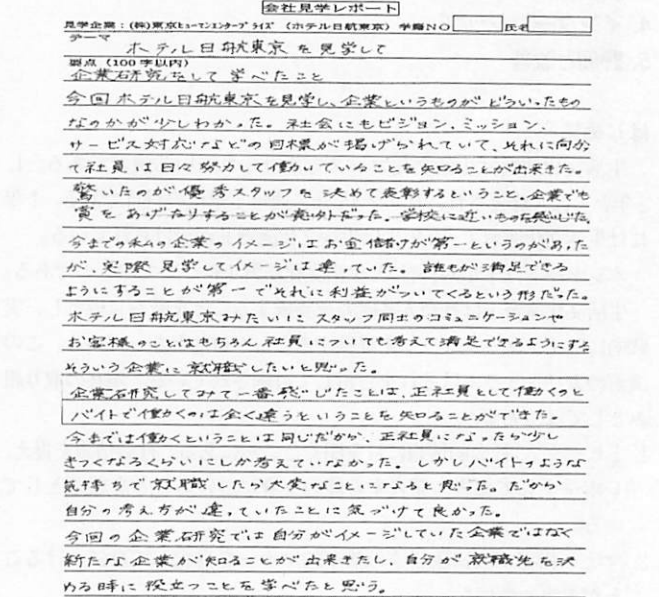 会社見学レポート
見学企業：(株)東京ヒューマンエンタープライズ （ホテル日航東京） 学籍NO 氏名
テーマ
ホテル日航東京を見学して
要点（100字以内）
企業研究をして学べたこと
今回ホテル日航東京を見学し、企業というものがどういったもの
なのかが少しわかった。社会にもビジョン、ミッション、
サービス対応などの目標が掲げられていて、それに向かっ
て社員は日々努力して働いていることを知ることが出来きた。
驚いたのが優秀スタッフを決めて表彰するということ。企業でも
賞をあげたりすることが意外だった。学校に近いものを感じた。
今までの私の企業のイメージはお金儲けが第一というのがあった
が、実際見学してイメージは違っていた。誰もが満足できる
ようにすることが第一でそれに利益がついてくるという形だった。
ホテル日航東京みたいにスタッフ同士のコミュニケーションや
お客様のことはもちろん社員についても考えて満足できるようにする
そういう企業に就職したいと思った。
企業研究してみて一番感じたことは、正社員として働くのと
バイトで働くのは全く違うということを知ることができた。
今までは働くということは同じだから、正社員になったら少し
きつくなるくらいにしか考えていなかった。しかしバイトのような
気持ちで就職したら大変なことになると思った。だから
自分の考え方が違っていたことに気づけて良かった。
今回の企業研究では自分がイメージしていた企業ではなく
新たな企業が知ることが出来きたし、自分が就職先を決
める時に役立つことを学べたと思う。